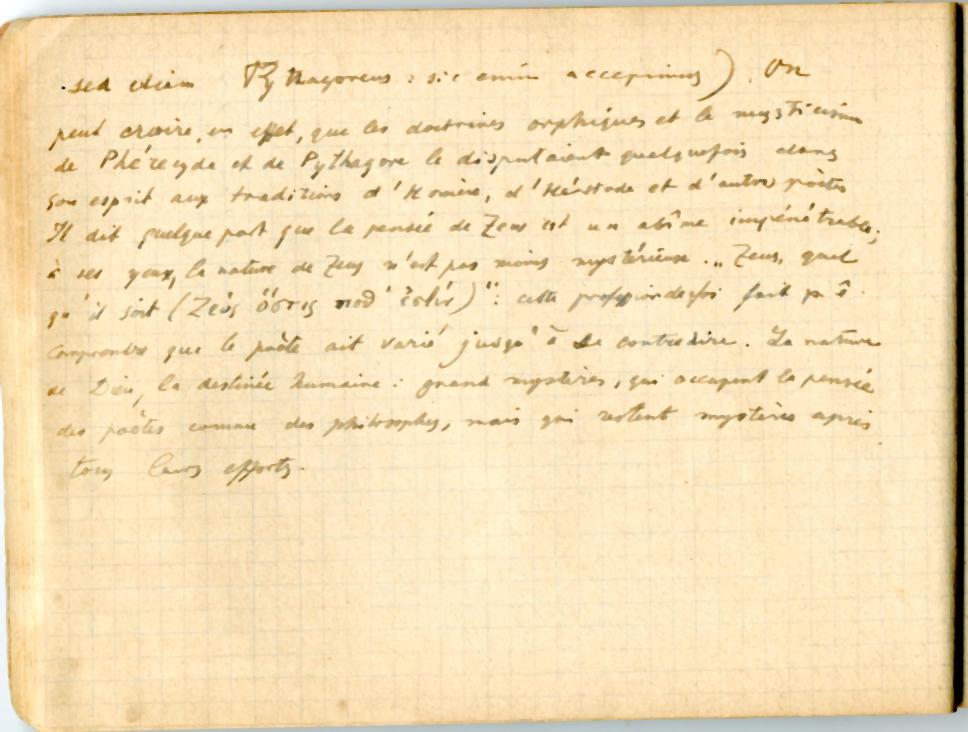 sed etiam Pythagoreus : sic enim accepimus). On
peut croire, en effet, que les doctrines orphiques et le mysticisme
de Phérécyde et de Pythagore le disputaient quelquefois dans
son esprit aux traditions d'Homère, d'Hésiode et d'autres poètes
Il dit quelque part que la pensée de Zeus est un abîme impénétrable;
à ses yeux, la nature de Zeus n'est pas moins mystérieuse. „ Zeus, quel
qu'il soit (Ζεύς ὅστις ποτ' ἐστίν)" : cette profession de foi fait
comprendre que le poète ait varié jusqu'à se contredire. La nature
de Dieu, la destinée humaine : grand mystères, qui occupent la pensée
des poètes comme des philosophes, mais qui restent mystères après
tous leurs efforts.